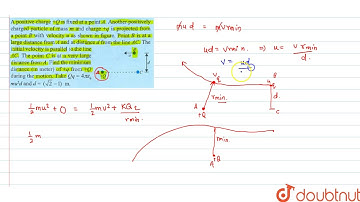 A positive charge +Q is fixed at a point A. Another positively
charged particle of mass m and charge +q is projected from
a point B with velocity u as shown in figure. Point B is at a
large distance from A and at distance d from the line AC. The
initial velocity is parallel to the line
AC. The point C is at a very large
distance from A. Find the minimum
distance (in meter) of +q from +Q
during the motion. Take Qq = 4πε₀
mu²d and d = (√2 − 1) m.
m u d = m v rmin
ud = v rmin. ⇒ u = v rmin / d
v = ud
½ mu² + 0 = ½ mv² + KQq / rmin
½ m
A
+Q
rmin.
v
u
B
d
C
rmin.
A
+Q
doubtnut